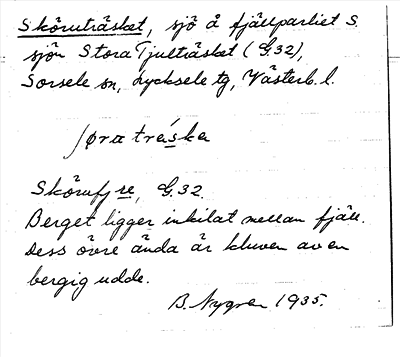 Sköruträsket, sjö å fjällpartiet S.
sjön Stora Tjulträsket (G.32),
Sorsele sn, Lycksele tg, Västerb. l.
ʃøra trä́ska
Skörufj re, G.32.
Berget ligger inkilat mellan fjäll.
Dess övre ända är kluven av en
bergig udde.
B. Nygren 1935.